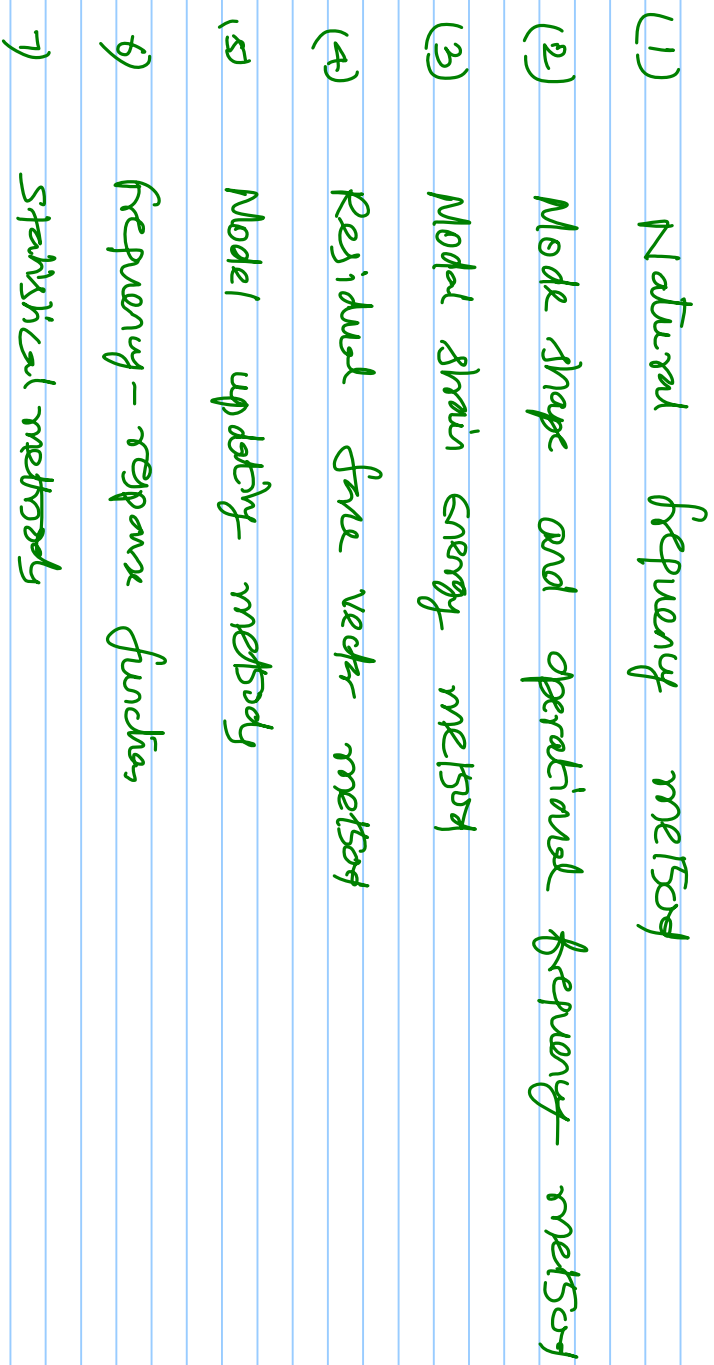 (1) Natural frequency method
(2) Mode shape and operational frequency method
(3) Modal strain energy method
(4) Residual force vector method
(5) Model updating methods
6) frequency-response function
7) statistical methods